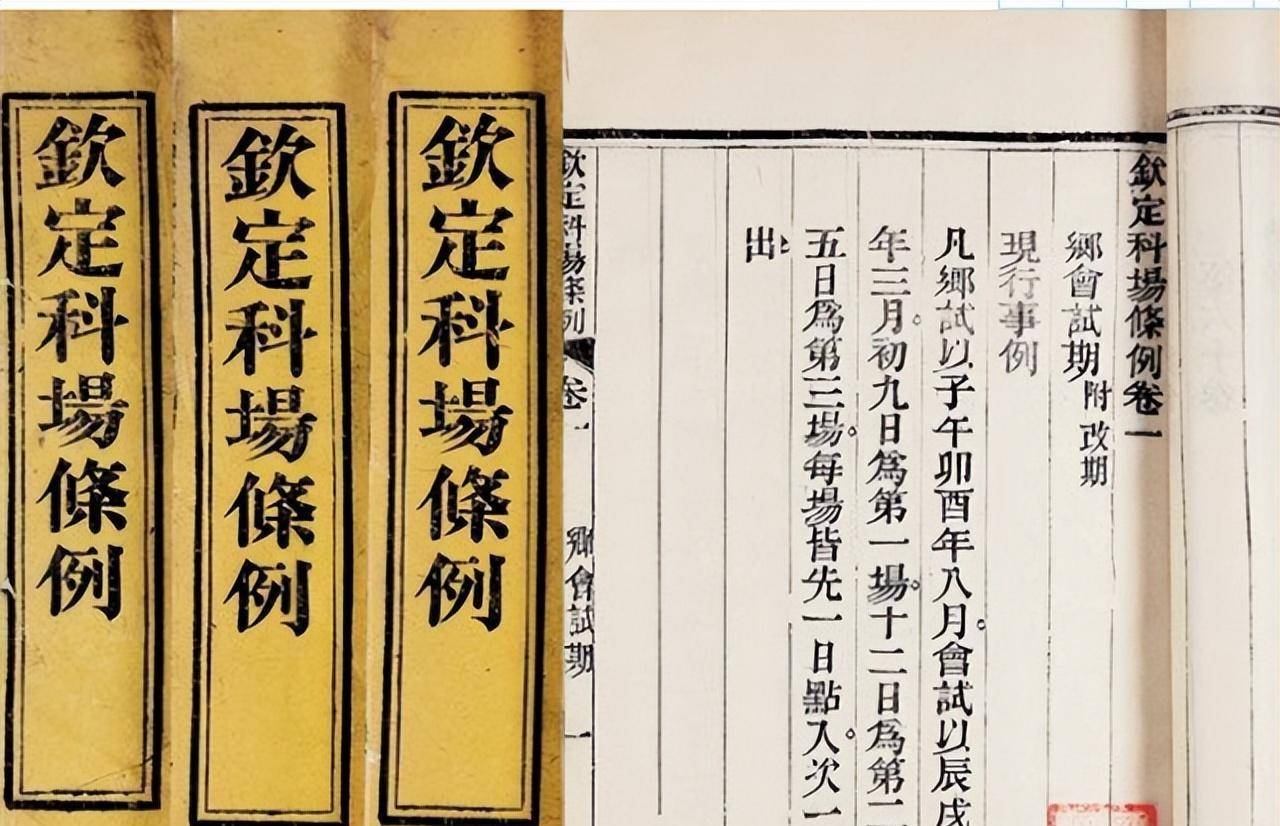 欽定科場條例
欽定科場條例
欽定科場條例
欽定科場條例卷一
鄉會試期附改期
現行事例
凡鄉試以子午卯酉年八月。會試以辰戌
年三月。初九日爲第一場。十二日爲第二
五日爲第三場。每場皆先一日點入。次一
出
欽定科場條例 卷一 鄉會試期 一